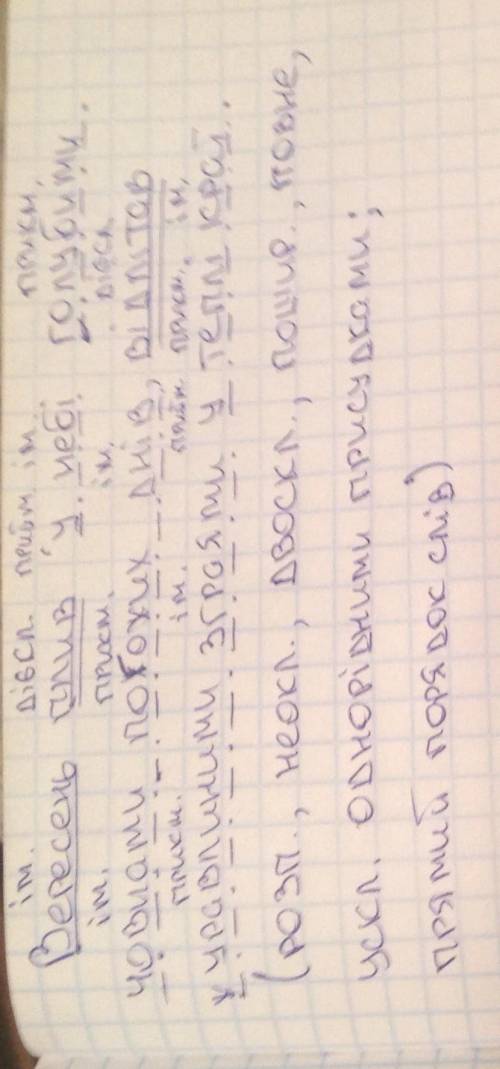 ім. дієсл. прийм ім прикм.
Вересень плив у небі голубими
ім. прикм. ім. дієсл
човнами погожих днів, відлітав
прикм. ім. прийм прикм. ім.
журавлиними зграями у теплі краї.
(розп., неокл., двоскл., пошир., повне,
ускл. однорідними присудками;
прямий порядок слів)